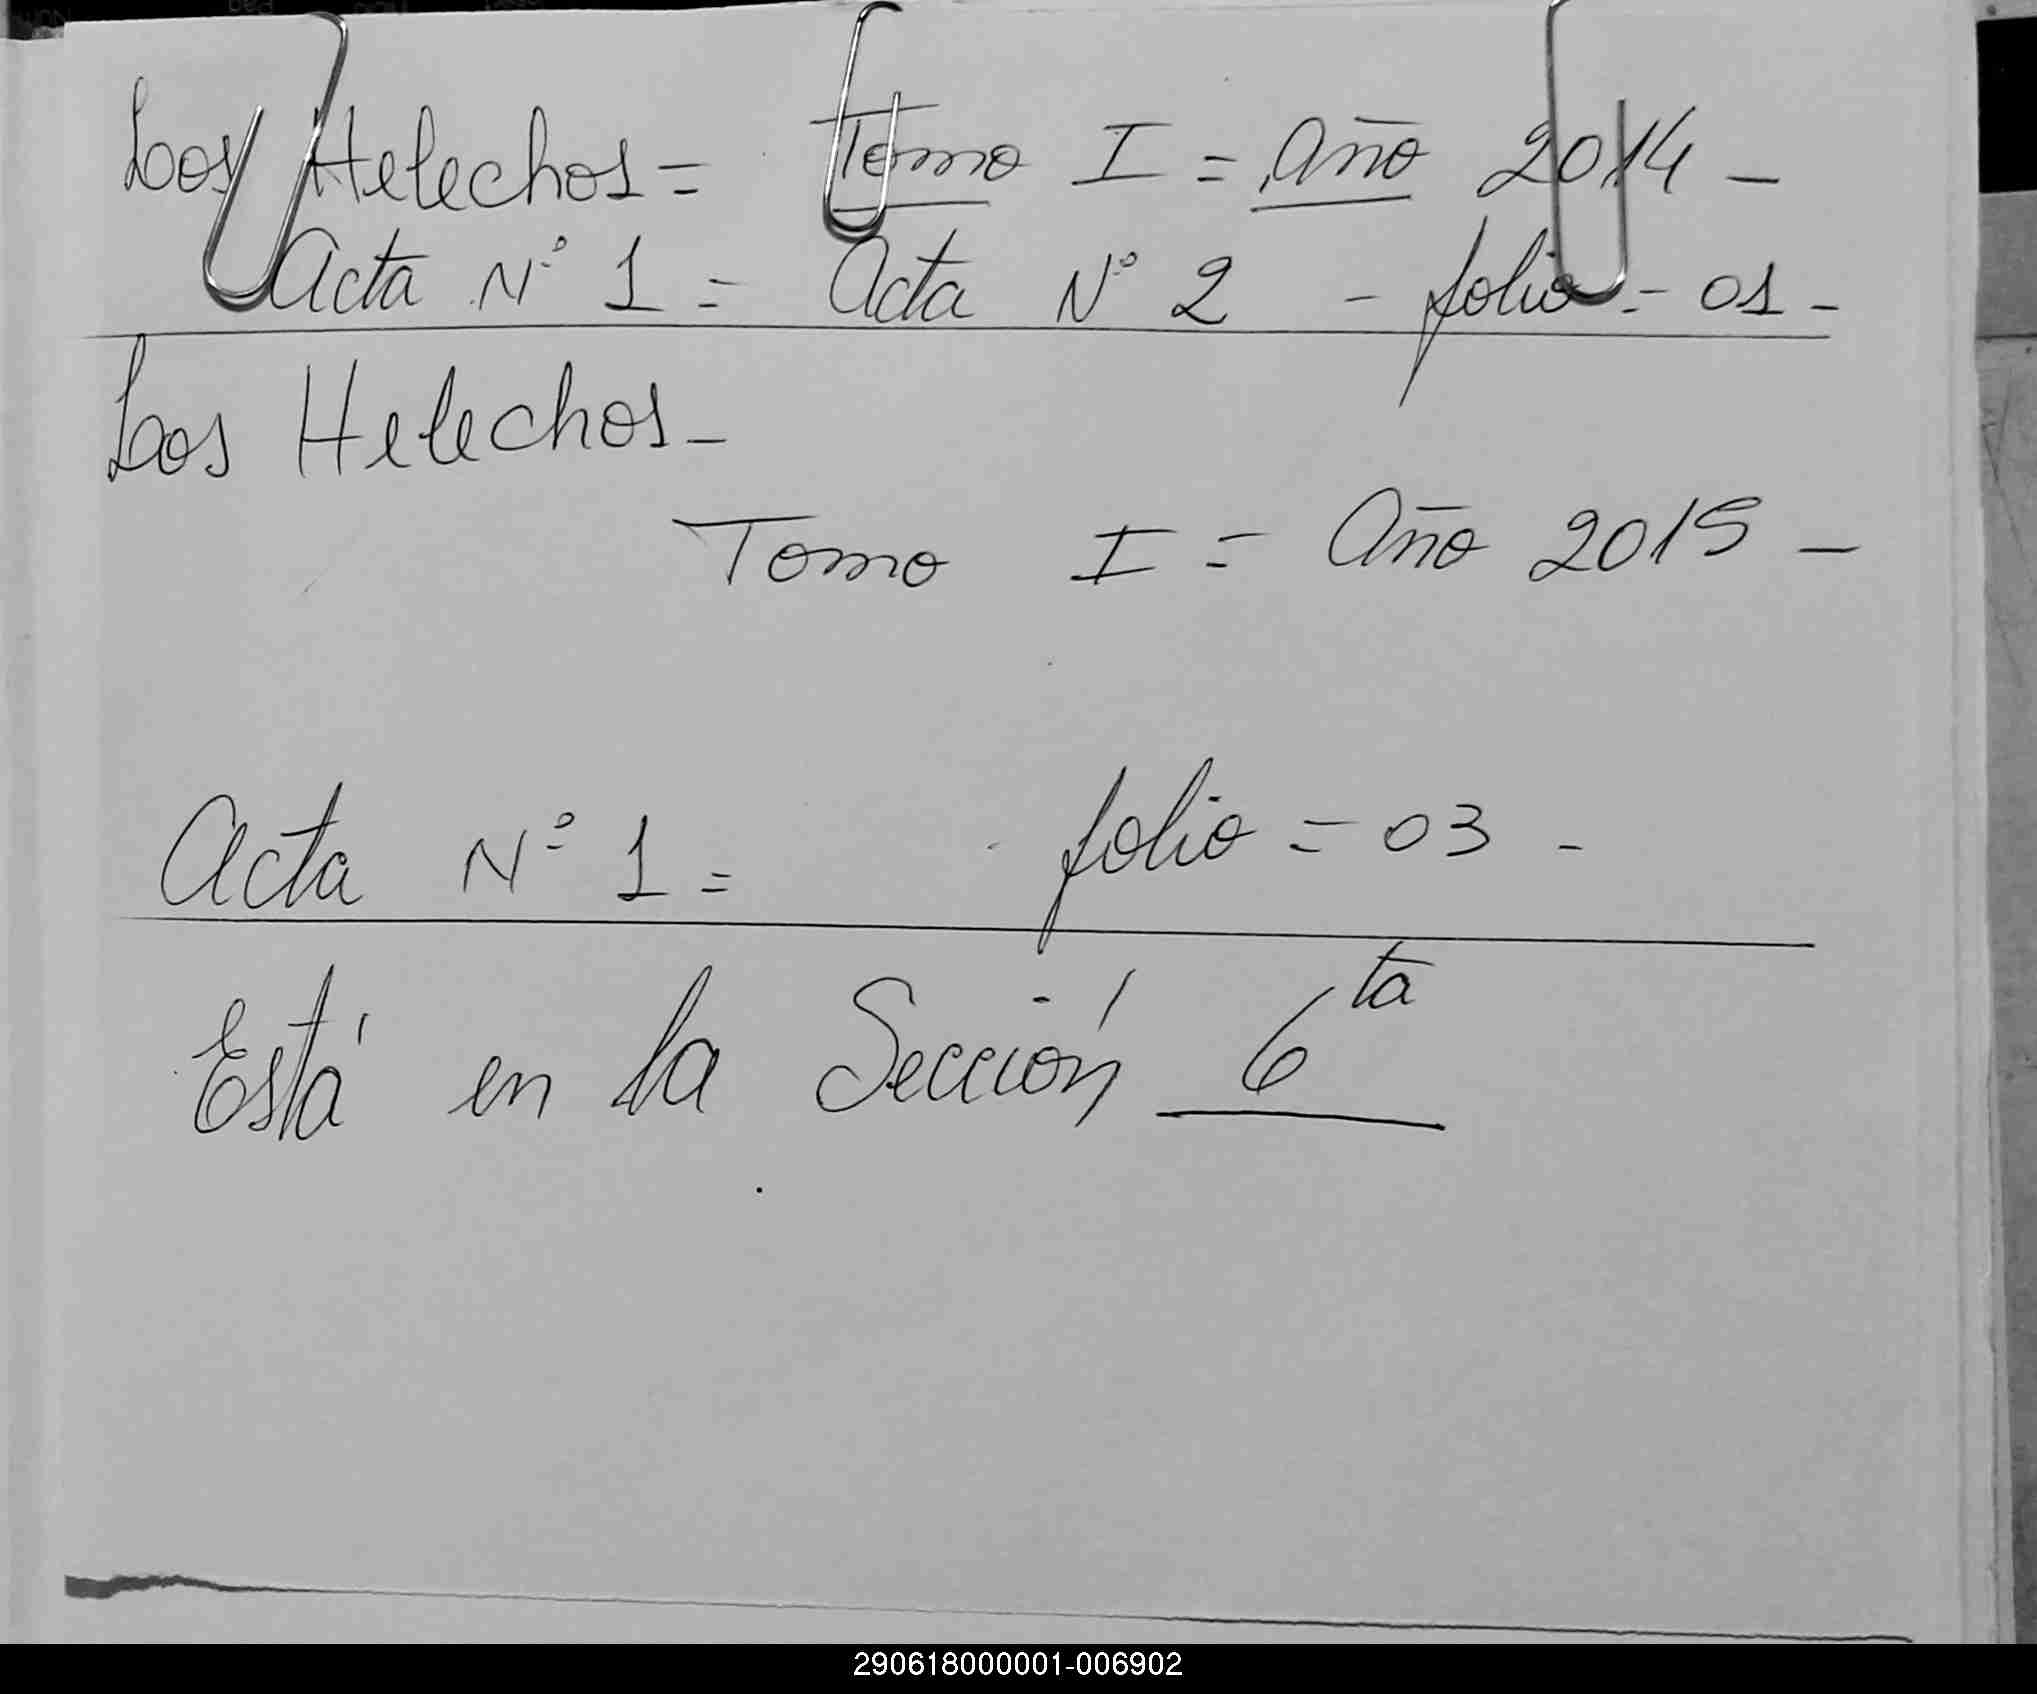 Los Helechos = Tomo I = Año 2014 -
Acta N° 1 = Acta N° 2 - folio = 01 -
Los Helechos -
Tomo I = Año 2015 -
Acta N° 1 = folio = 03 -
Está en la Sección 6ta
290618000001-006902